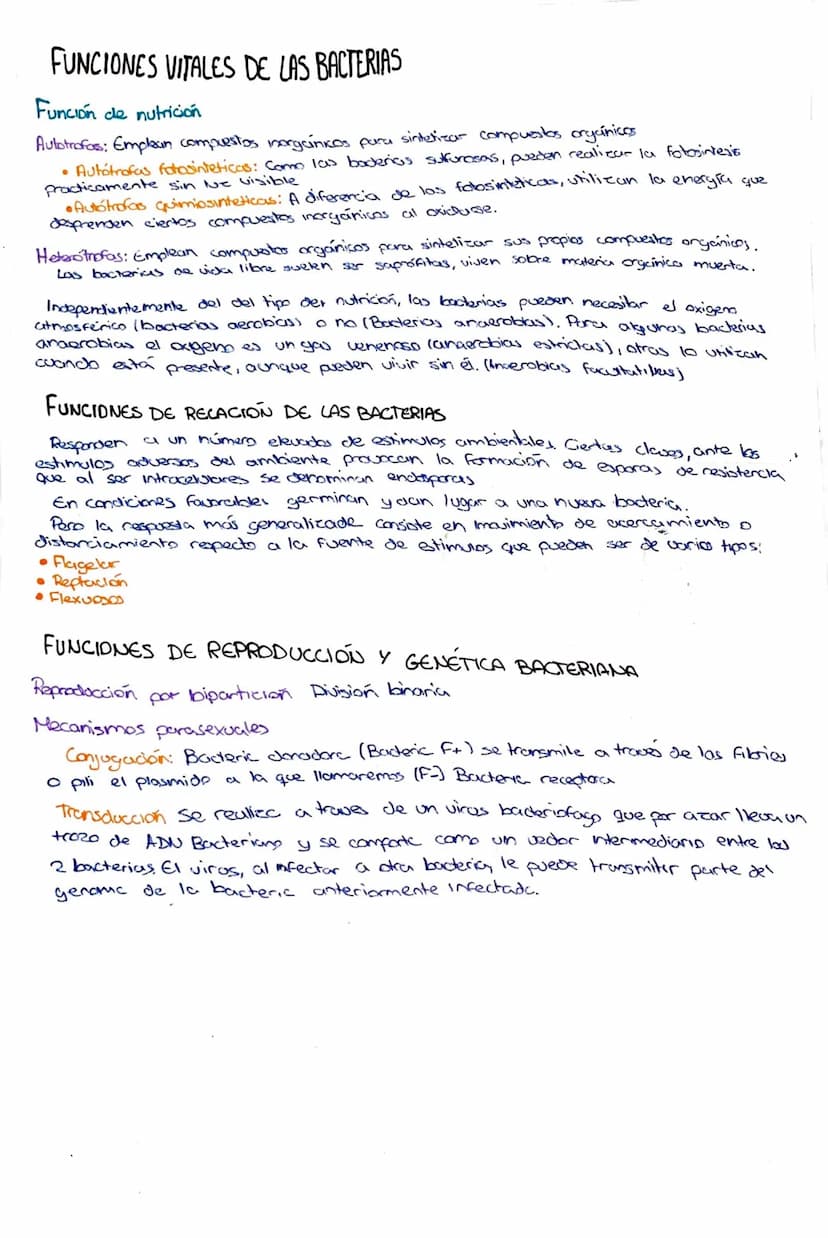 FUNCIONES VITALES DE LAS BACTERIAS
Función de nutrición
Autótrofos: Emplean compuestos inorgánicos para sintetizar compuestos orgánicos
• Autótrofas fotosintéticas: Como las bacterias sulfurosas, pueden realizar la fotosíntesis
prácticamente sin luz visible
• Autótrofas quimiosintéticas: A diferencia de las fotosintéticas, utilizan la energía que
desprenden ciertos compuestos inorgánicos al oxidarse.
Heterótrofas: Emplean compuestos orgánicos para sintetizar sus propios compuestos orgánicos.
Las bacterias de vida libre suelen ser saprófitas, viven sobre materia orgánica muerta.
Independientemente del del tipo der nutrición, las bacterias pueden necesitar el oxigeno
atmosférico (bacterias aerobias) o no (Bacterias anaerobias). Para algunas bacterias
anaerobias el oxigeno es un gas venenoso (anaerobias estrictas), otras lo utilizan
cuando está presente, aunque pueden vivir sin él. (Anaerobias facultativas)
FUNCIONES DE RELACIÓN DE LAS BACTERIAS
Responden a un número elevados de estimulos ambientales. Ciertas clases, ante los
estimulos adversos del ambiente provocan la formación de esporas de resistencia
que al ser intracelulares se denominan endosporas
En condiciones favorables germinan y dan lugar a una nueva bacteria.
Pero la respuesta más generalizada consiste en movimiento de acercamiento o
distanciamiento respecto a la fuente de estimulos que pueden ser de varios tipos:
• Flagelar
• Reptación
• Flexuosos
FUNCIONES DE REPRODUCCIÓN Y GENÉTICA BACTERIANA
Reproducción por bipartición División binaria
Mecanismos parasexuales
Conjugación: Bacteria donadora (Bacteria F+) se transmite a través de las fibrias
o pili el plasmido a la que llamaremos (F-) Bacteria receptora
Transducción se realiza a traves de un virus bacteriofago que por azar lleva un
trozo de ADN Bacteriano y se comporta como un vector intermediario entre las
2 bacterias. El virus, al infectar a otra bacteria, le puede transmitir parte del
genoma de la bacteria anteriormente infectada.